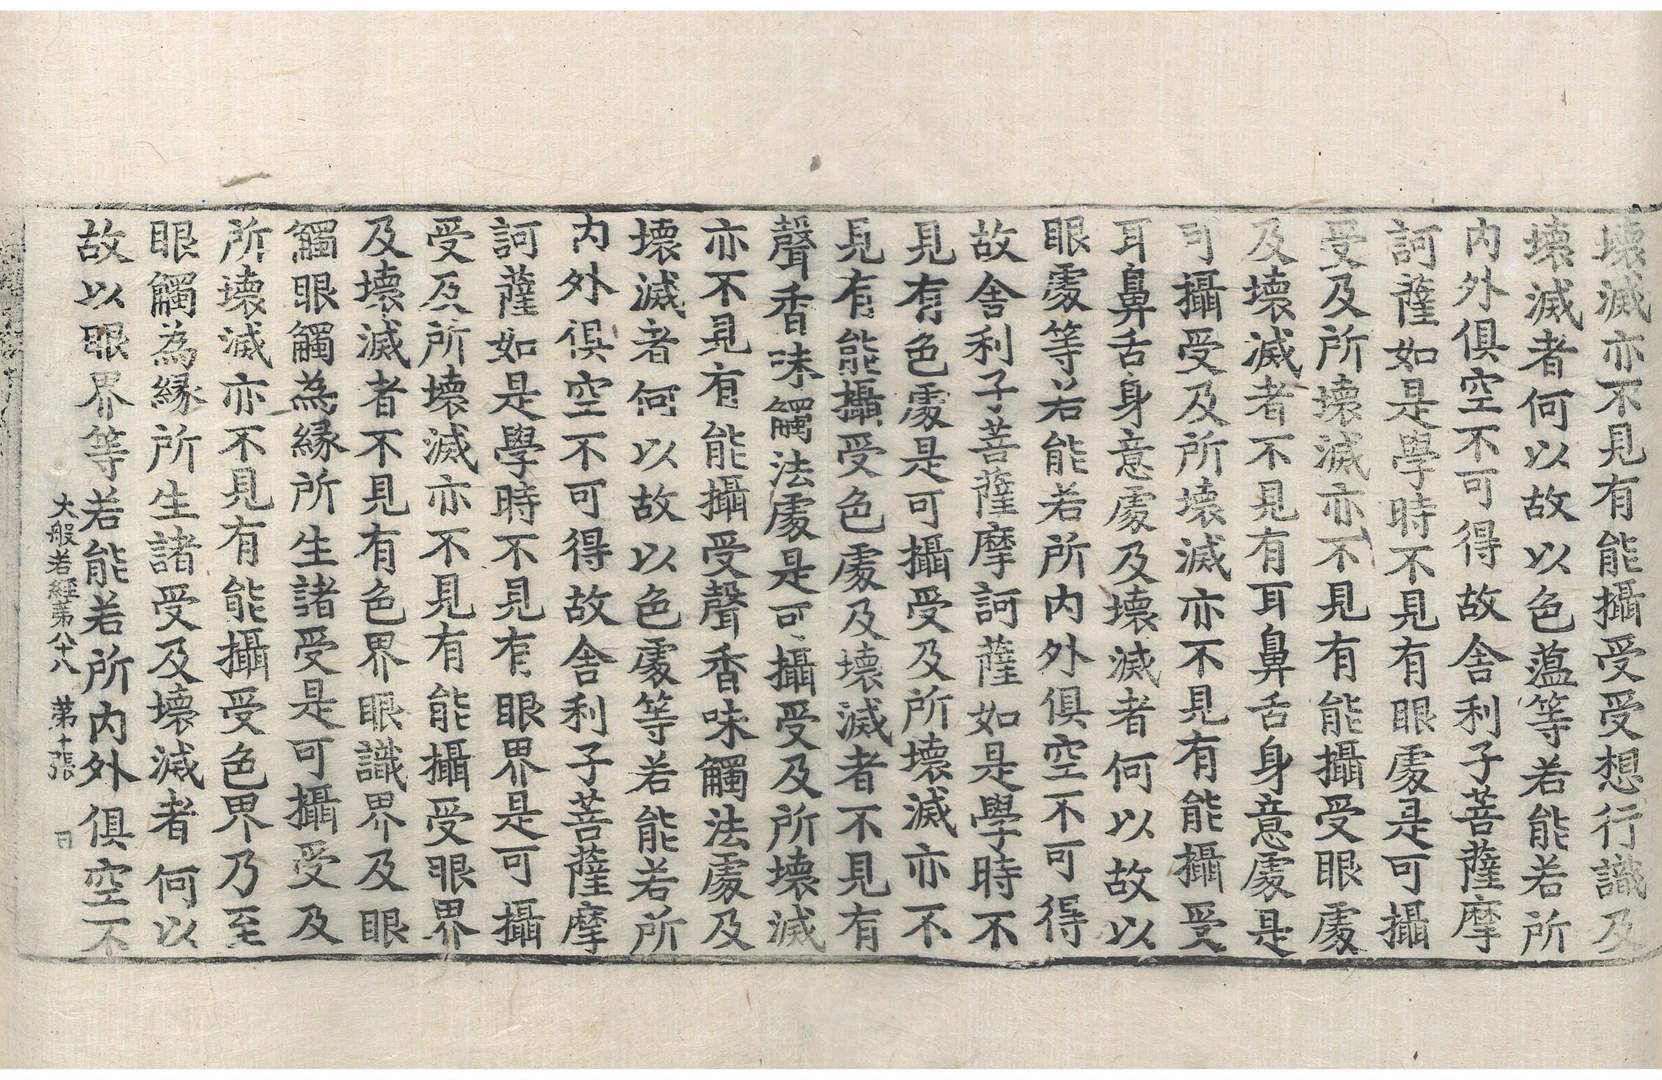 壞滅亦不見有能攝受受想行識及
壞滅者何以故以色蘊等若能若所
内外俱空不可得故舍利子菩薩摩
訶薩如是學時不見有眼處是可攝
受及所壞滅亦不見有能攝受眼處
及壞滅者不見有耳鼻舌身意處是
可攝受及所壞滅亦不見有能攝受
耳鼻舌身意處及壞滅者何以故以
眼處等若能若所内外俱空不可得
故舍利子菩薩摩訶薩如是學時不
見有色處是可攝受及所壞滅亦不
見有能攝受色處及壞滅者不見有
聲香味觸法處是可攝受及所壞滅
亦不見有能攝受聲香味觸法處及
壞滅者何以故以色處等若能若所
内外俱空不可得故舍利子菩薩摩
訶薩如是學時不見有眼界是可攝
受及所壞滅亦不見有能攝受眼界
及壞滅者不見有色界眼識界及眼
觸眼觸為縁所生諸受是可攝受及
所壞滅亦不見有能攝受色界乃至
眼觸為縁所生諸受及壞滅者何以
故以眼界等若能若所内外俱空不
大般若經第八十八 第十張 日